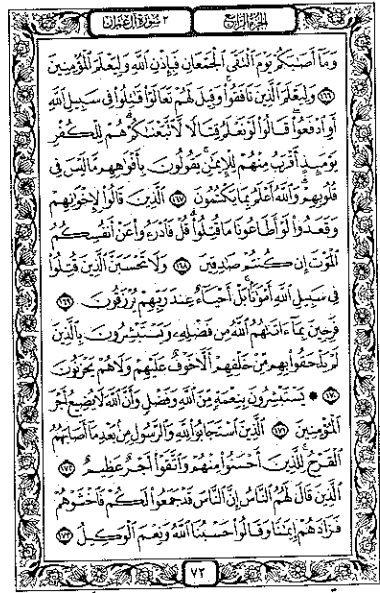 الجزء الرابع
٣ سورة آل عمران
وَمَآ أَصَٰبَكُمْ يَوْمَ ٱلْتَقَى ٱلْجَمْعَانِ فَبِإِذْنِ ٱللَّهِ وَلِيَعْلَمَ ٱلْمُؤْمِنِينَ
١٦٦ وَلِيَعْلَمَ ٱلَّذِينَ نَافَقُوا۟ وَقِيلَ لَهُمْ تَعَالَوْا۟ قَٰتِلُوا۟ فِى سَبِيلِ ٱللَّهِ
أَوِ ٱدْفَعُوا۟ قَالُوا۟ لَوْ نَعْلَمُ قِتَالًا لَّٱتَّبَعْنَٰكُمْ هُمْ لِلْكُفْرِ
يَوْمَئِذٍ أَقْرَبُ مِنْهُمْ لِلْإِيمَٰنِ يَقُولُونَ بِأَفْوَٰهِهِم مَّا لَيْسَ فِى
قُلُوبِهِمْ وَٱللَّهُ أَعْلَمُ بِمَا يَكْتُمُونَ ١٦٧ ٱلَّذِينَ قَالُوا۟ لِإِخْوَٰنِهِمْ
وَقَعَدُوا۟ لَوْ أَطَاعُونَا مَا قُتِلُوا۟ قُلْ فَٱدْرَءُوا۟ عَنْ أَنفُسِكُمُ
ٱلْمَوْتَ إِن كُنتُمْ صَٰدِقِينَ ١٦٨ وَلَا تَحْسَبَنَّ ٱلَّذِينَ قُتِلُوا۟
فِى سَبِيلِ ٱللَّهِ أَمْوَٰتًۢا بَلْ أَحْيَآءٌ عِندَ رَبِّهِمْ يُرْزَقُونَ ١٦٩
فَرِحِينَ بِمَآ ءَاتَىٰهُمُ ٱللَّهُ مِن فَضْلِهِۦ وَيَسْتَبْشِرُونَ بِٱلَّذِينَ
لَمْ يَلْحَقُوا۟ بِهِم مِّنْ خَلْفِهِمْ أَلَّا خَوْفٌ عَلَيْهِمْ وَلَا هُمْ يَحْزَنُونَ
١٧٠ * يَسْتَبْشِرُونَ بِنِعْمَةٍ مِّنَ ٱللَّهِ وَفَضْلٍ وَأَنَّ ٱللَّهَ لَا يُضِيعُ أَجْرَ
ٱلْمُؤْمِنِينَ ١٧١ ٱلَّذِينَ ٱسْتَجَابُوا۟ لِلَّهِ وَٱلرَّسُولِ مِنۢ بَعْدِ مَآ أَصَابَهُمُ
ٱلْقَرْحُ لِلَّذِينَ أَحْسَنُوا۟ مِنْهُمْ وَٱتَّقَوْا۟ أَجْرٌ عَظِيمٌ ١٧٢
ٱلَّذِينَ قَالَ لَهُمُ ٱلنَّاسُ إِنَّ ٱلنَّاسَ قَدْ جَمَعُوا۟ لَكُمْ فَٱخْشَوْهُمْ
فَزَادَهُمْ إِيمَٰنًا وَقَالُوا۟ حَسْبُنَا ٱللَّهُ وَنِعْمَ ٱلْوَكِيلُ ١٧٣
٧٢